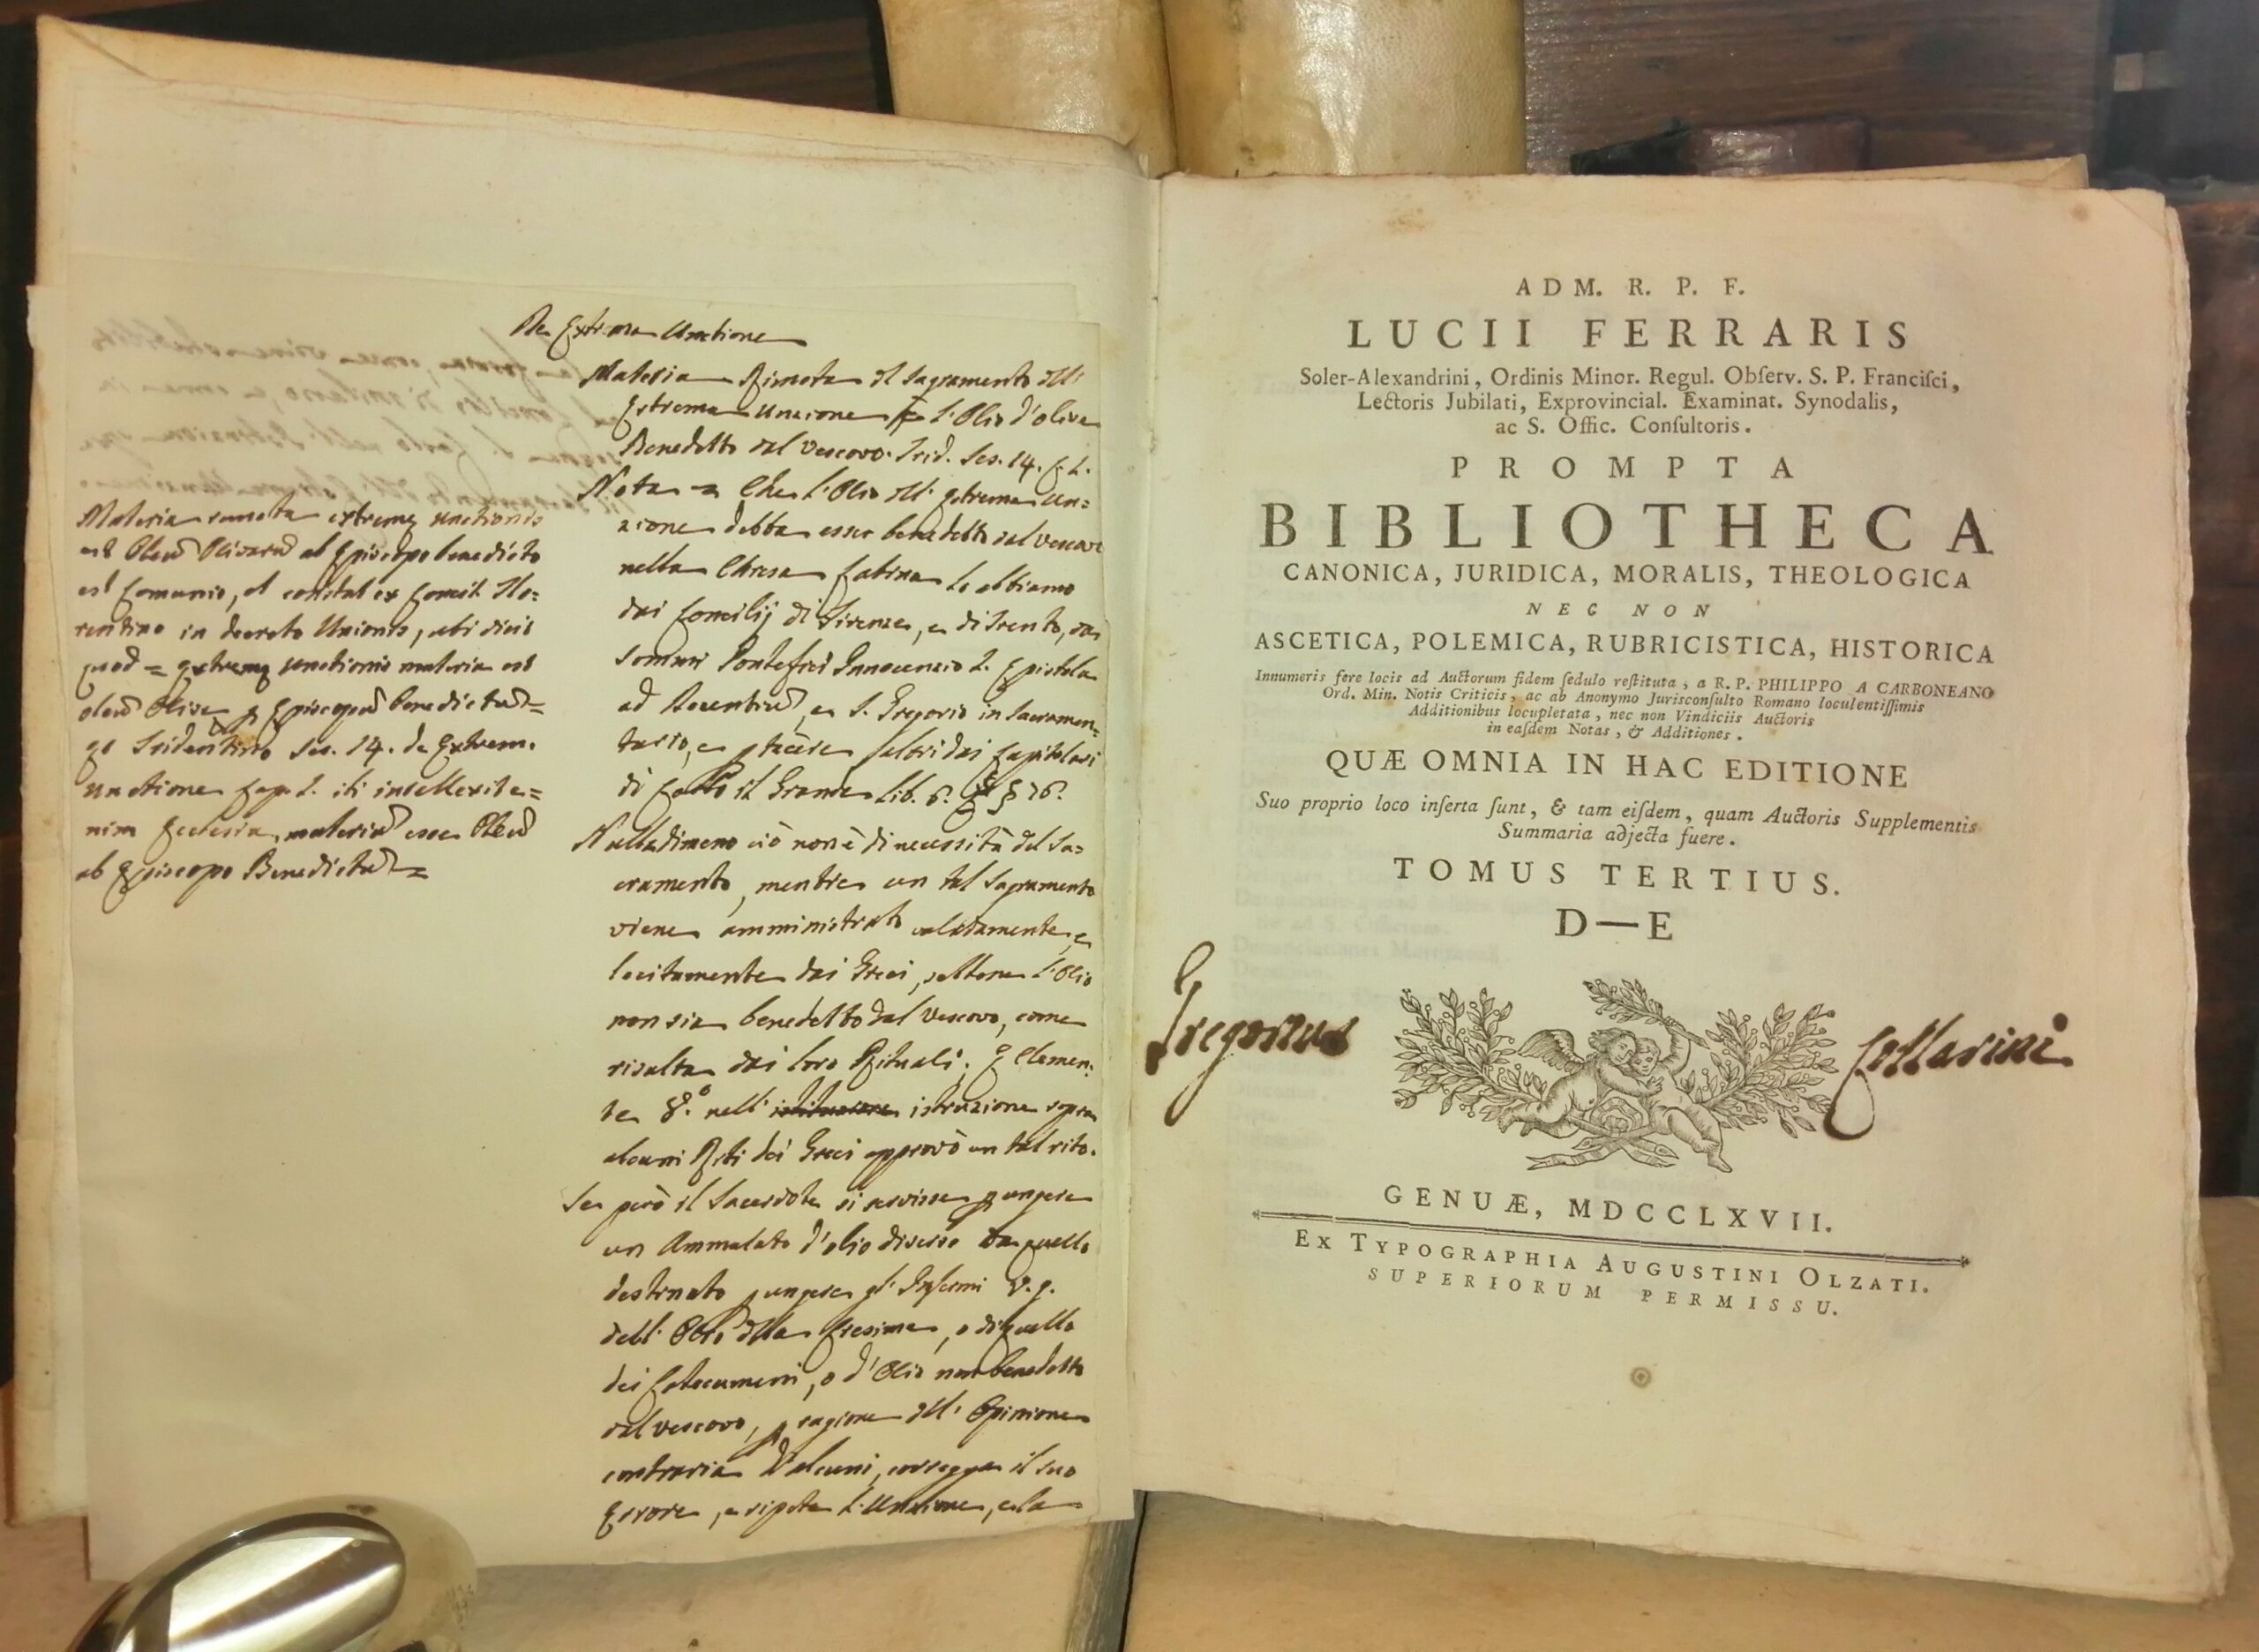 De Extrema Unctione
Materia Rimota del Sagramento dell'
Estrema Unzione è l'Olio d'oliva
Benedetto dal Vescovo. Trid. Ses. 14. c. 1.
Nota = Che l'Olio dell' estrema Un=
zione debba esser benedetto dal Vescovo
nella Chiesa Latina lo abbiamo
dai Concilij di Firenze, e di Trento, da
Sommi Pontefici Innocenzio I. Epistola
ad Decentiu, e S. Gregorio in Sacramen=
tario, e p tacere altri dai Capitolari
di Carlo il Grande Lib. 6. § 76.
Nulladimeno ciò non è di necessità del Sa=
cramento, mentre un tal Sagramento
viene amministrato validamente, e
lecitamente dai Greci, sebbene l'Olio
non sia benedetto dal Vescovo, come
risulta dai loro Rituali; E Clemen:
te 8.º nell' istruzione sopra
alcuni Riti dei Greci approvò un tal rito.
Se però il Sacerdote si servisse p ungere
un Ammalato d'olio diverso da quello
destinato p ungere gl' Infermi v. g.
dell' Olio della Cresima, o di quello
dei Catecumeni, o d'Olio non benedetto
dal Vescovo, p ragione dell' Opinione
contraria d'alcuni, corregga il suo
Errore, e ripeta l'Unzione, e la
Materia remota extremę unctionis
est Oleu Olivaru ab Episcopo benedicto
ut constat ex Concil. Flo=
rentino in decreto Unionis, ubi dicit
quod = extremę unctionis materia est
oleu Olivę p Episcopu benedictu =
Tridentino Ses. 14. de Extrem.
unctione cap. 1. ibi intellexit e=
nim Ecclesia, materia esse Oleu
ab Episcopo Benedictu =
ADM. R. P. F.
LUCII FERRARIS
Soler-Alexandrini, Ordinis Minor. Regul. Obſerv. S. P. Franciſci,
Lectoris Jubilati, Exprovincial. Examinat. Synodalis,
ac S. Offic. Conſultoris.
PROMPTA
BIBLIOTHECA
CANONICA, JURIDICA, MORALIS, THEOLOGICA
NEC NON
ASCETICA, POLEMICA, RUBRICISTICA, HISTORICA
Innumeris fere locis ad Auctorum fidem ſedulo reſtituta, a R. P. PHILIPPO A CARBONEANO
Ord. Min. Notis Criticis, ac ab Anonymo Jurisconſulto Romano loculentiſſimis
Additionibus locupletata, nec non Vindiciis Auctoris
in eaſdem Notas, & Additiones.
QUÆ OMNIA IN HAC EDITIONE
Suo proprio loco inſerta ſunt, & tam eiſdem, quam Auctoris Supplementis
Summaria adjecta fuere.
TOMUS TERTIUS.
D—E
Gregorius Collarini
GENUÆ, MDCCLXVII.
Ex Typographia Augustini Olzati.
SUPERIORUM PERMISSU.